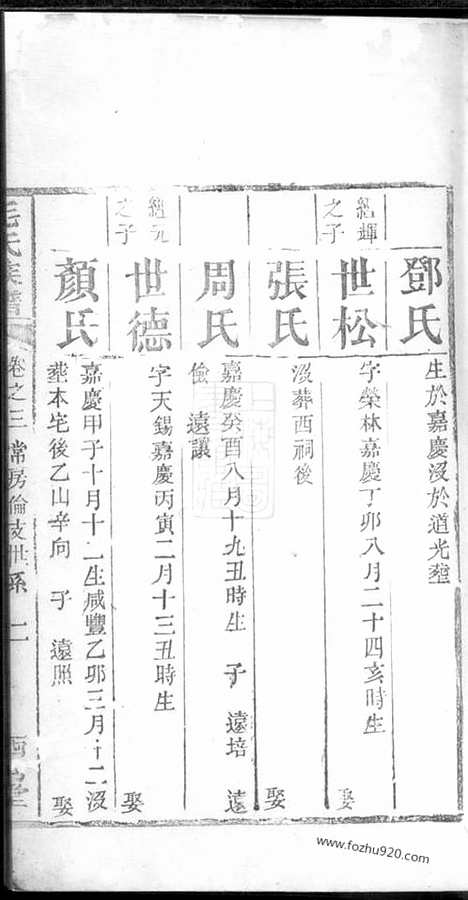 鄧氏
生於嘉慶沒於道光塟
紹輝
之子
世松
字榮林嘉慶丁卯八月二十四亥時生
娶
張氏
沒葬西祠後
娶
周氏
嘉慶癸酉八月十九丑時生 子 遠培 遠
儉 遠讓
紹元
之子
世德
字天錫嘉慶丙寅二月十三丑時生
娶
顏氏
嘉慶甲子十月十二生咸豐乙卯三月十二沒
塟本宅後乙山辛向 子 遠照
娶
毛氏族譜
卷之三 常房倫支世系
www.fozhu920.com